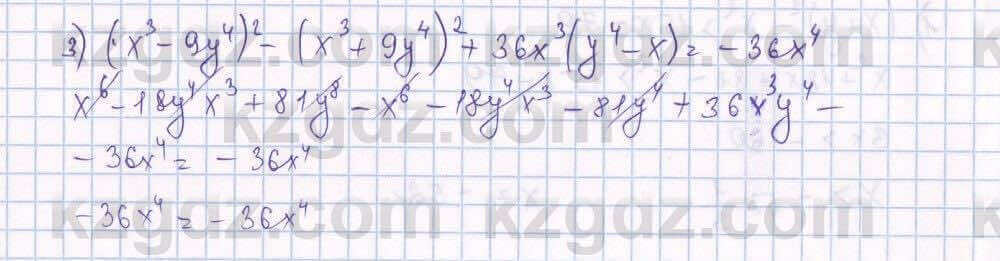 3) (x³ - 9y⁴)² - (x³ + 9y⁴)² + 36x³(y⁴ - x) = -36x⁴
x⁶ - 18y⁴x³ + 81y⁸ - x⁶ - 18y⁴x³ - 81y⁴ + 36x³y⁴ -
- 36x⁴ = - 36x⁴
- 36x⁴ = - 36x⁴
kzgdz.com